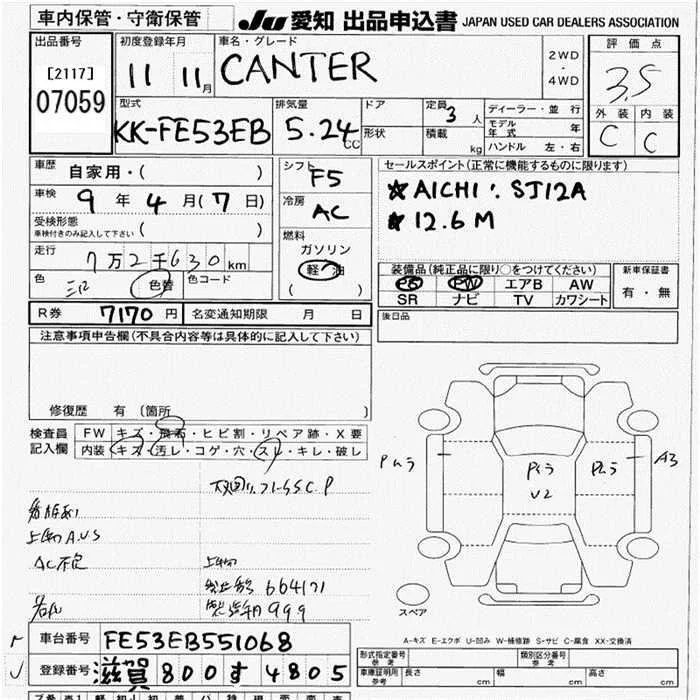 車内保管・守衛保管
JU 愛知 出品申込書 JAPAN USED CAR DEALERS ASSOCIATION
出品番号
[2117]
07059
初度登録年月
11 11月
車名・グレード
CANTER
2WD
・
4WD
評価点
3.5
外装 内装
C C
型式
KK-FE53EB
排気量
5.24cc
ドア
形状
定員 3人
積載 kg
ディーラー・並行
モデル年式 年
ハンドル 左・右
車歴 自家用・( )
車検 9年4月(7日)
受検形態
車検付きのみ記入して下さい ( )
走行 7万2千630km
色 色替 色コード
シフト
F5
冷房
AC
燃料
ガソリン
軽油
( )
セールスポイント(正常に機能するものに限ります)
★AICHI: SJ12A
★12.6M
装備品(純正品に限り○をつけてください)
PS PW エアB AW
SR ナビ TV カワシート
新車保証書
有・無
R券 7170円 名変通知期限 月 日
後日品
注意事項申告欄(不具合内容等は具体的に記入して下さい)
修復歴 有(箇所 )
検査員
記入欄
FW キズ・飛石・ヒビ割・リペア跡・X要
内装 キズ・汚レ・コゲ・穴・スレ・キレ・破レ
A3
U2
上物A.U.S
AC不良
664171
999
スペア
A-キズ E-エクボ U-凹み W-補修跡 S-サビ C-腐食 XX-交換済
車台番号 FE53EB551068
登録番号 滋賀800す4805
形式指定番号
参考
類別区分番号
参考
車庫証明用
参考
長さ cm 幅 cm 高さ cm